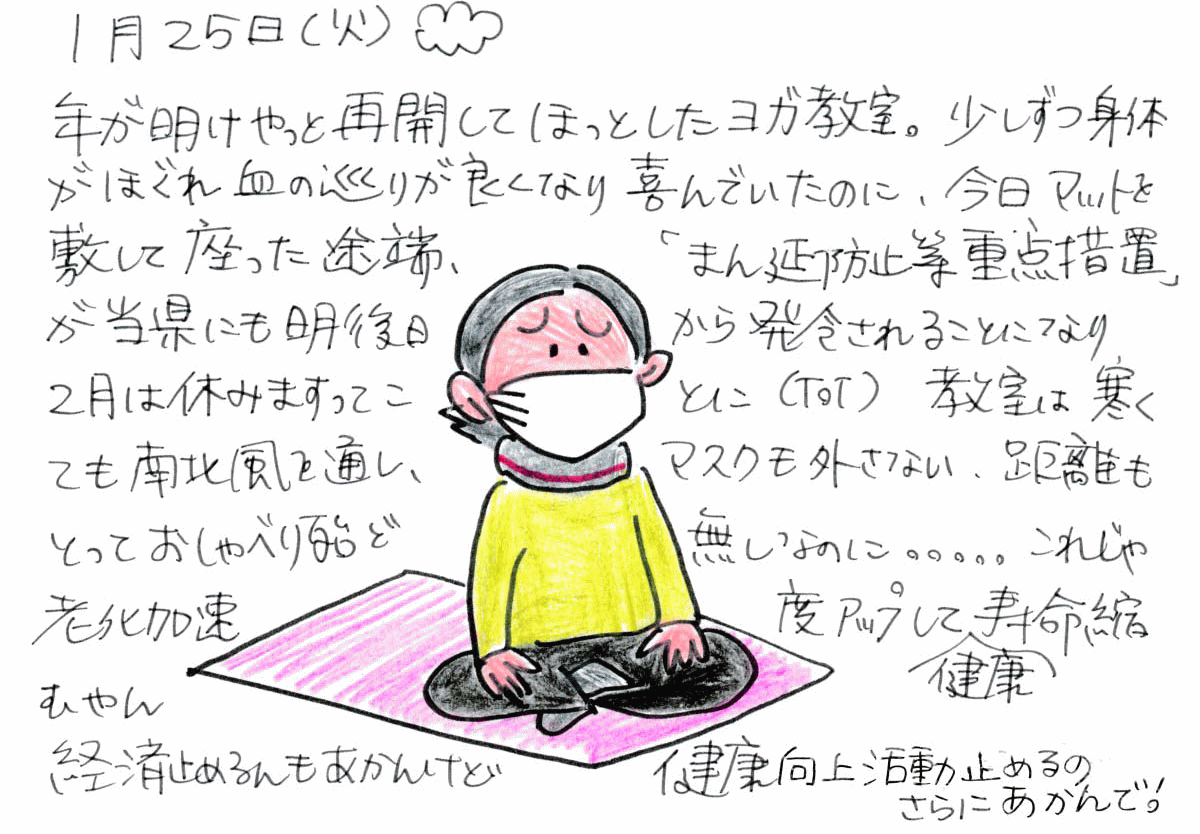 1月25日(火)
年が明けやっと再開してほっとしたヨガ教室。少しずつ身体
がほぐれ血の巡りが良くなり喜んでいたのに、今日マットを
敷して座った途端、「まん延防止等重点措置」
が当県にも明後日から発令されることになり
2月は休みますってことに(ToT) 教室は寒く
ても南北風を通し、マスクも外さない、距離も
とっておしゃべり殆ど無しなのに。。。。。これじゃ
老化加速度アップして健康寿命縮
むやん
経済止めるんもあかんけど健康向上活動止めるの
さらにあかんで!